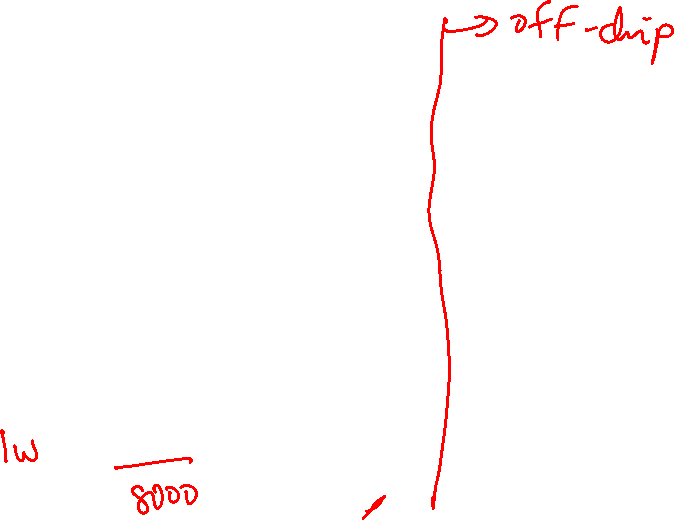 off-chip
lw
8000